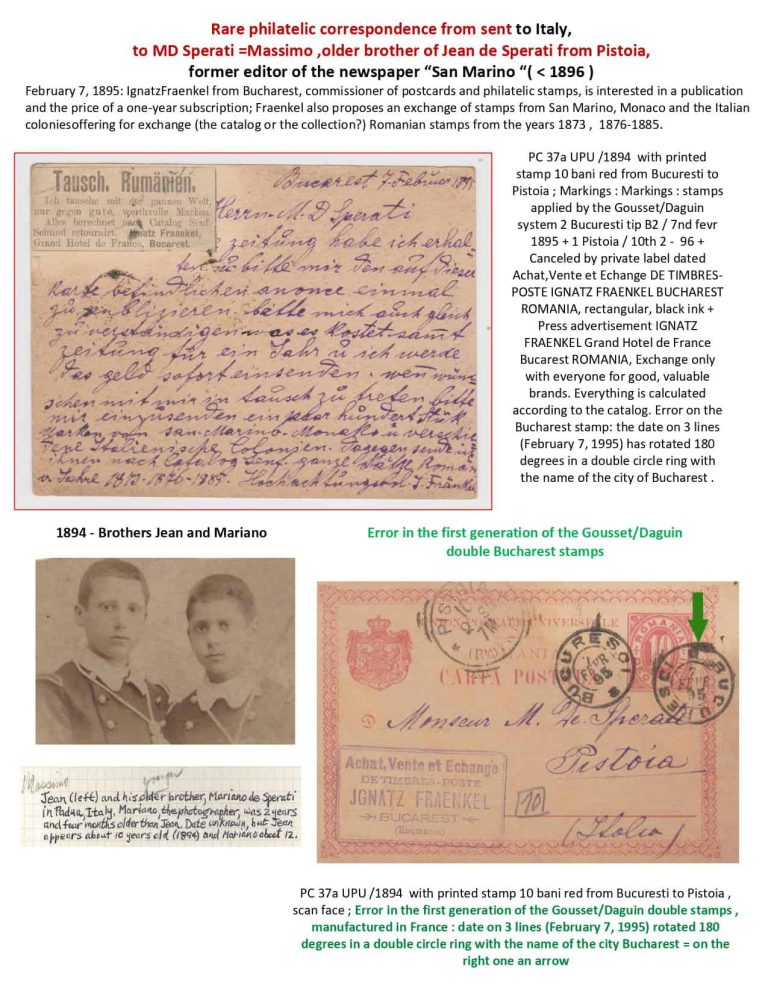 Rare philatelic correspondence from sent to Italy,
to MD Sperati =Massimo ,older brother of Jean de Sperati from Pistoia,
former editor of the newspaper “San Marino “( < 1896 )
February 7, 1895: IgnatzFraenkel from Bucharest, commissioner of postcards and philatelic stamps, is interested in a publication
and the price of a one-year subscription; Fraenkel also proposes an exchange of stamps from San Marino, Monaco and the Italian
coloniesoffering for exchange (the catalog or the collection?) Romanian stamps from the years 1873 , 1876-1885.
Tausch. Rumänien.
Ich tausche mit der ganzen Welt,
nur gegen gute, werthvolle Marken.
Alles berechnet nach Catalog Senf.
Schund retournirt. Ignatz Fraenkel,
Grand Hotel de France, Bucarest.
Bucarest 7. Februar 1895
Herrn M. D Sperati
zeitung habe ich erhal-
ten u bitte mir den auf dieser
Karte befindlichen anonce einmal
zu publizieren. bitte mich auch gleich
zu verständigen was es kostet samt
zeitung für ein Jahr u ich werde
das geld sofort einsenden. wenn wün-
schen mit mir in tausch zu treten bitte
mir einzusenden ein paar hundert Stük
Marken von San-Marino-Monako u
Italienische Colonien. Dagegen sende
ihnen nach Catalog Senf. ganze Romän
v. Jahre 1873-1876-1885. Hochachtungsvoll J. Fränkel
PC 37a UPU /1894 with printed
stamp 10 bani red from Bucuresti to
Pistoia ; Markings : Markings : stamps
applied by the Gousset/Daguin
system 2 Bucuresti tip B2 / 7nd fevr
1895 + 1 Pistoia / 10th 2 - 96 +
Canceled by private label dated
Achat,Vente et Echange DE TIMBRES-
POSTE IGNATZ FRAENKEL BUCHAREST
ROMANIA, rectangular, black ink +
Press advertisement IGNATZ
FRAENKEL Grand Hotel de France
Bucarest ROMANIA, Exchange only
with everyone for good, valuable
brands. Everything is calculated
according to the catalog. Error on the
Bucharest stamp: the date on 3 lines
(February 7, 1995) has rotated 180
degrees in a double circle ring with
the name of the city of Bucharest .
1894 - Brothers Jean and Mariano
Massimo younger
Jean (left) and his older brother, Mariano de Sperati
in Padua, Italy. Mariano, the photographer, was 2 years
and four months older than Jean. Date unknown, but Jean
appears about 10 years old (1894) and Mariano about 12.
Error in the first generation of the Gousset/Daguin
double Bucharest stamps
PISTOIA
UNION POSTALE UNIVERSELLE
ROMANIA
(ROMANIA)
10
CARTA POSTALA
BUCURESCI
7
FEVR
95
BUCURESCI
FEVR
95
D Monsieur M. De Sperati
Pistoia
(Italia)
Achat, Vente et Echange
DE TIMBRES-POSTE
JGNATZ FRAENKEL
BUCAREST
(Roumanie)
10
PC 37a UPU /1894 with printed stamp 10 bani red from Bucuresti to Pistoia ,
scan face ; Error in the first generation of the Gousset/Daguin double stamps ,
manufactured in France : date on 3 lines (February 7, 1995) rotated 180
degrees in a double circle ring with the name of the city Bucharest = on the
right one an arrow